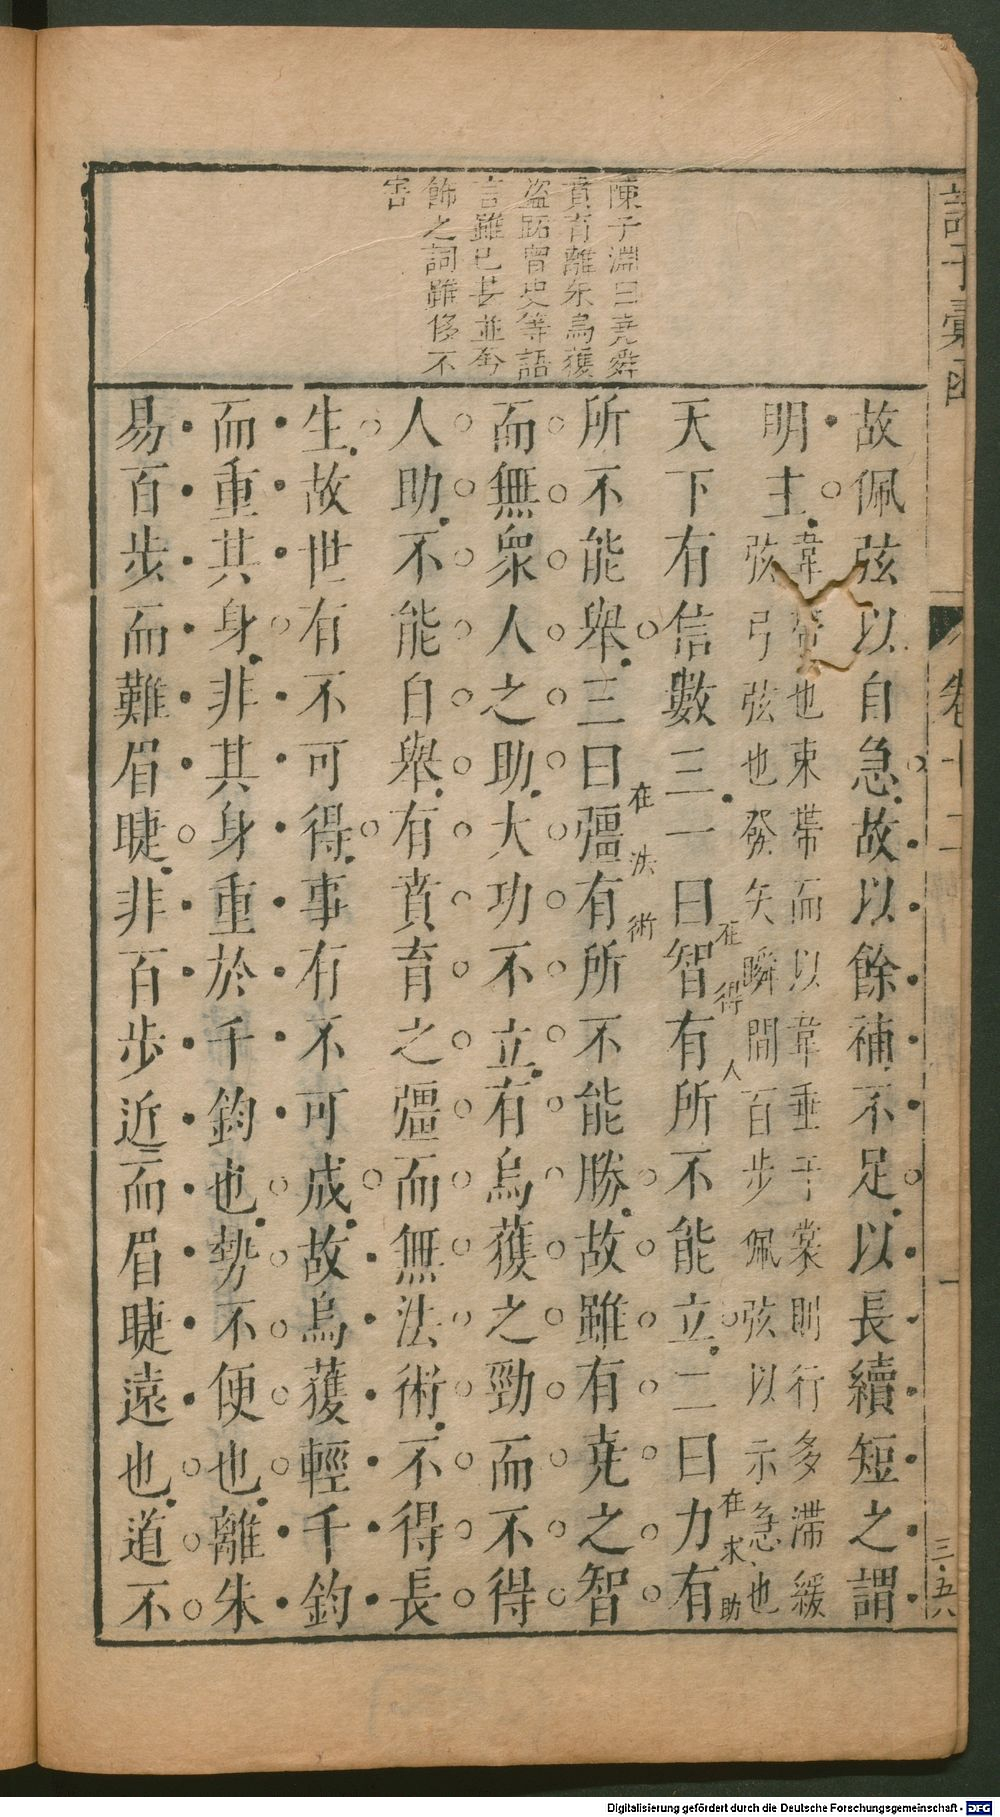 陳子淵曰堯舜
賁育離朱烏獲
盜跖曾史等語
言雖已甚並夸
飾之詞雖侈不
害
故佩弦以自急故以餘補不足以長續短之謂
明主
韋帶也束帶而以韋垂于裳則行多滯緩
弦弓弦也發矢瞬間百步佩弦以示急也
天下有信數三一曰智有所不能立二曰力有
在得人
在求助
所不能舉三曰彊有所不能勝故雖有堯之智
在法術
而無衆人之助大功不立有烏獲之勁而不得
人助不能自舉有賁育之彊而無法術不得長
生故世有不可得事有不可成故烏獲輕千鈞
而重其身非其身重於千鈞也勢不便也離朱
易百步而難眉睫非百步近而眉睫遠也道不
諸子彙函
卷十二
三五六
Digitalisierung gefördert durch die Deutsche Forschungsgemeinschaft - DFG